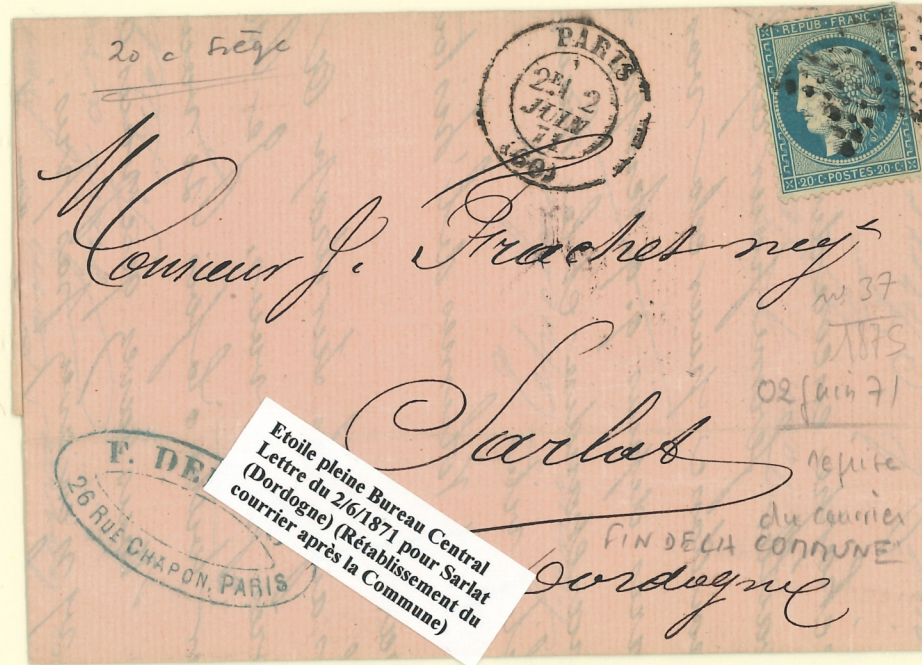 20 c Siège
PARIS
2E/ 2
JUIN
71
(60)
REPUB. FRANÇ.
20·C·POSTES·20·C
Monsieur J. Frachet negt
Sarlat
Dordogne
no 37
1875
02 juin 71
reprise
du courrier
FIN DE LA COMMUNE
F. DE
26 RUE CHAPON, PARIS
Etoile pleine Bureau Central
Lettre du 2/6/1871 pour Sarlat
(Dordogne) (Rétablissement du
courrier après la Commune)